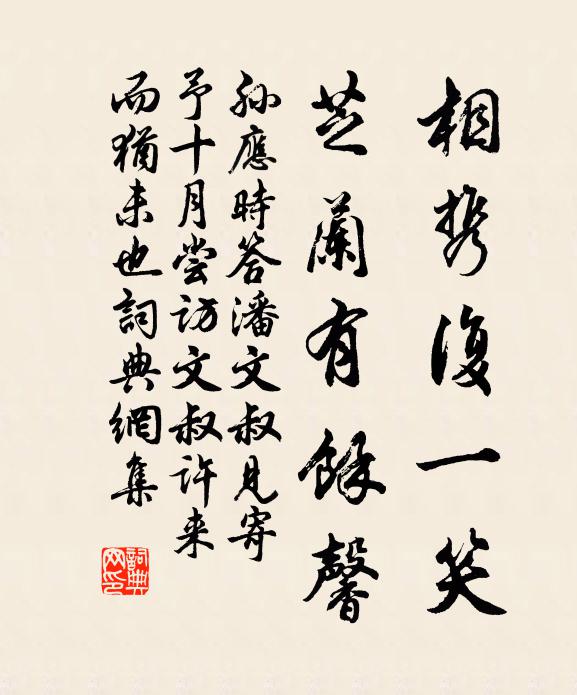 相携復一笑
芝蘭有餘馨
孫應時答潘文叔見寄
予十月嘗访文叔許来
而猶未也詞典網集
詞典
网印